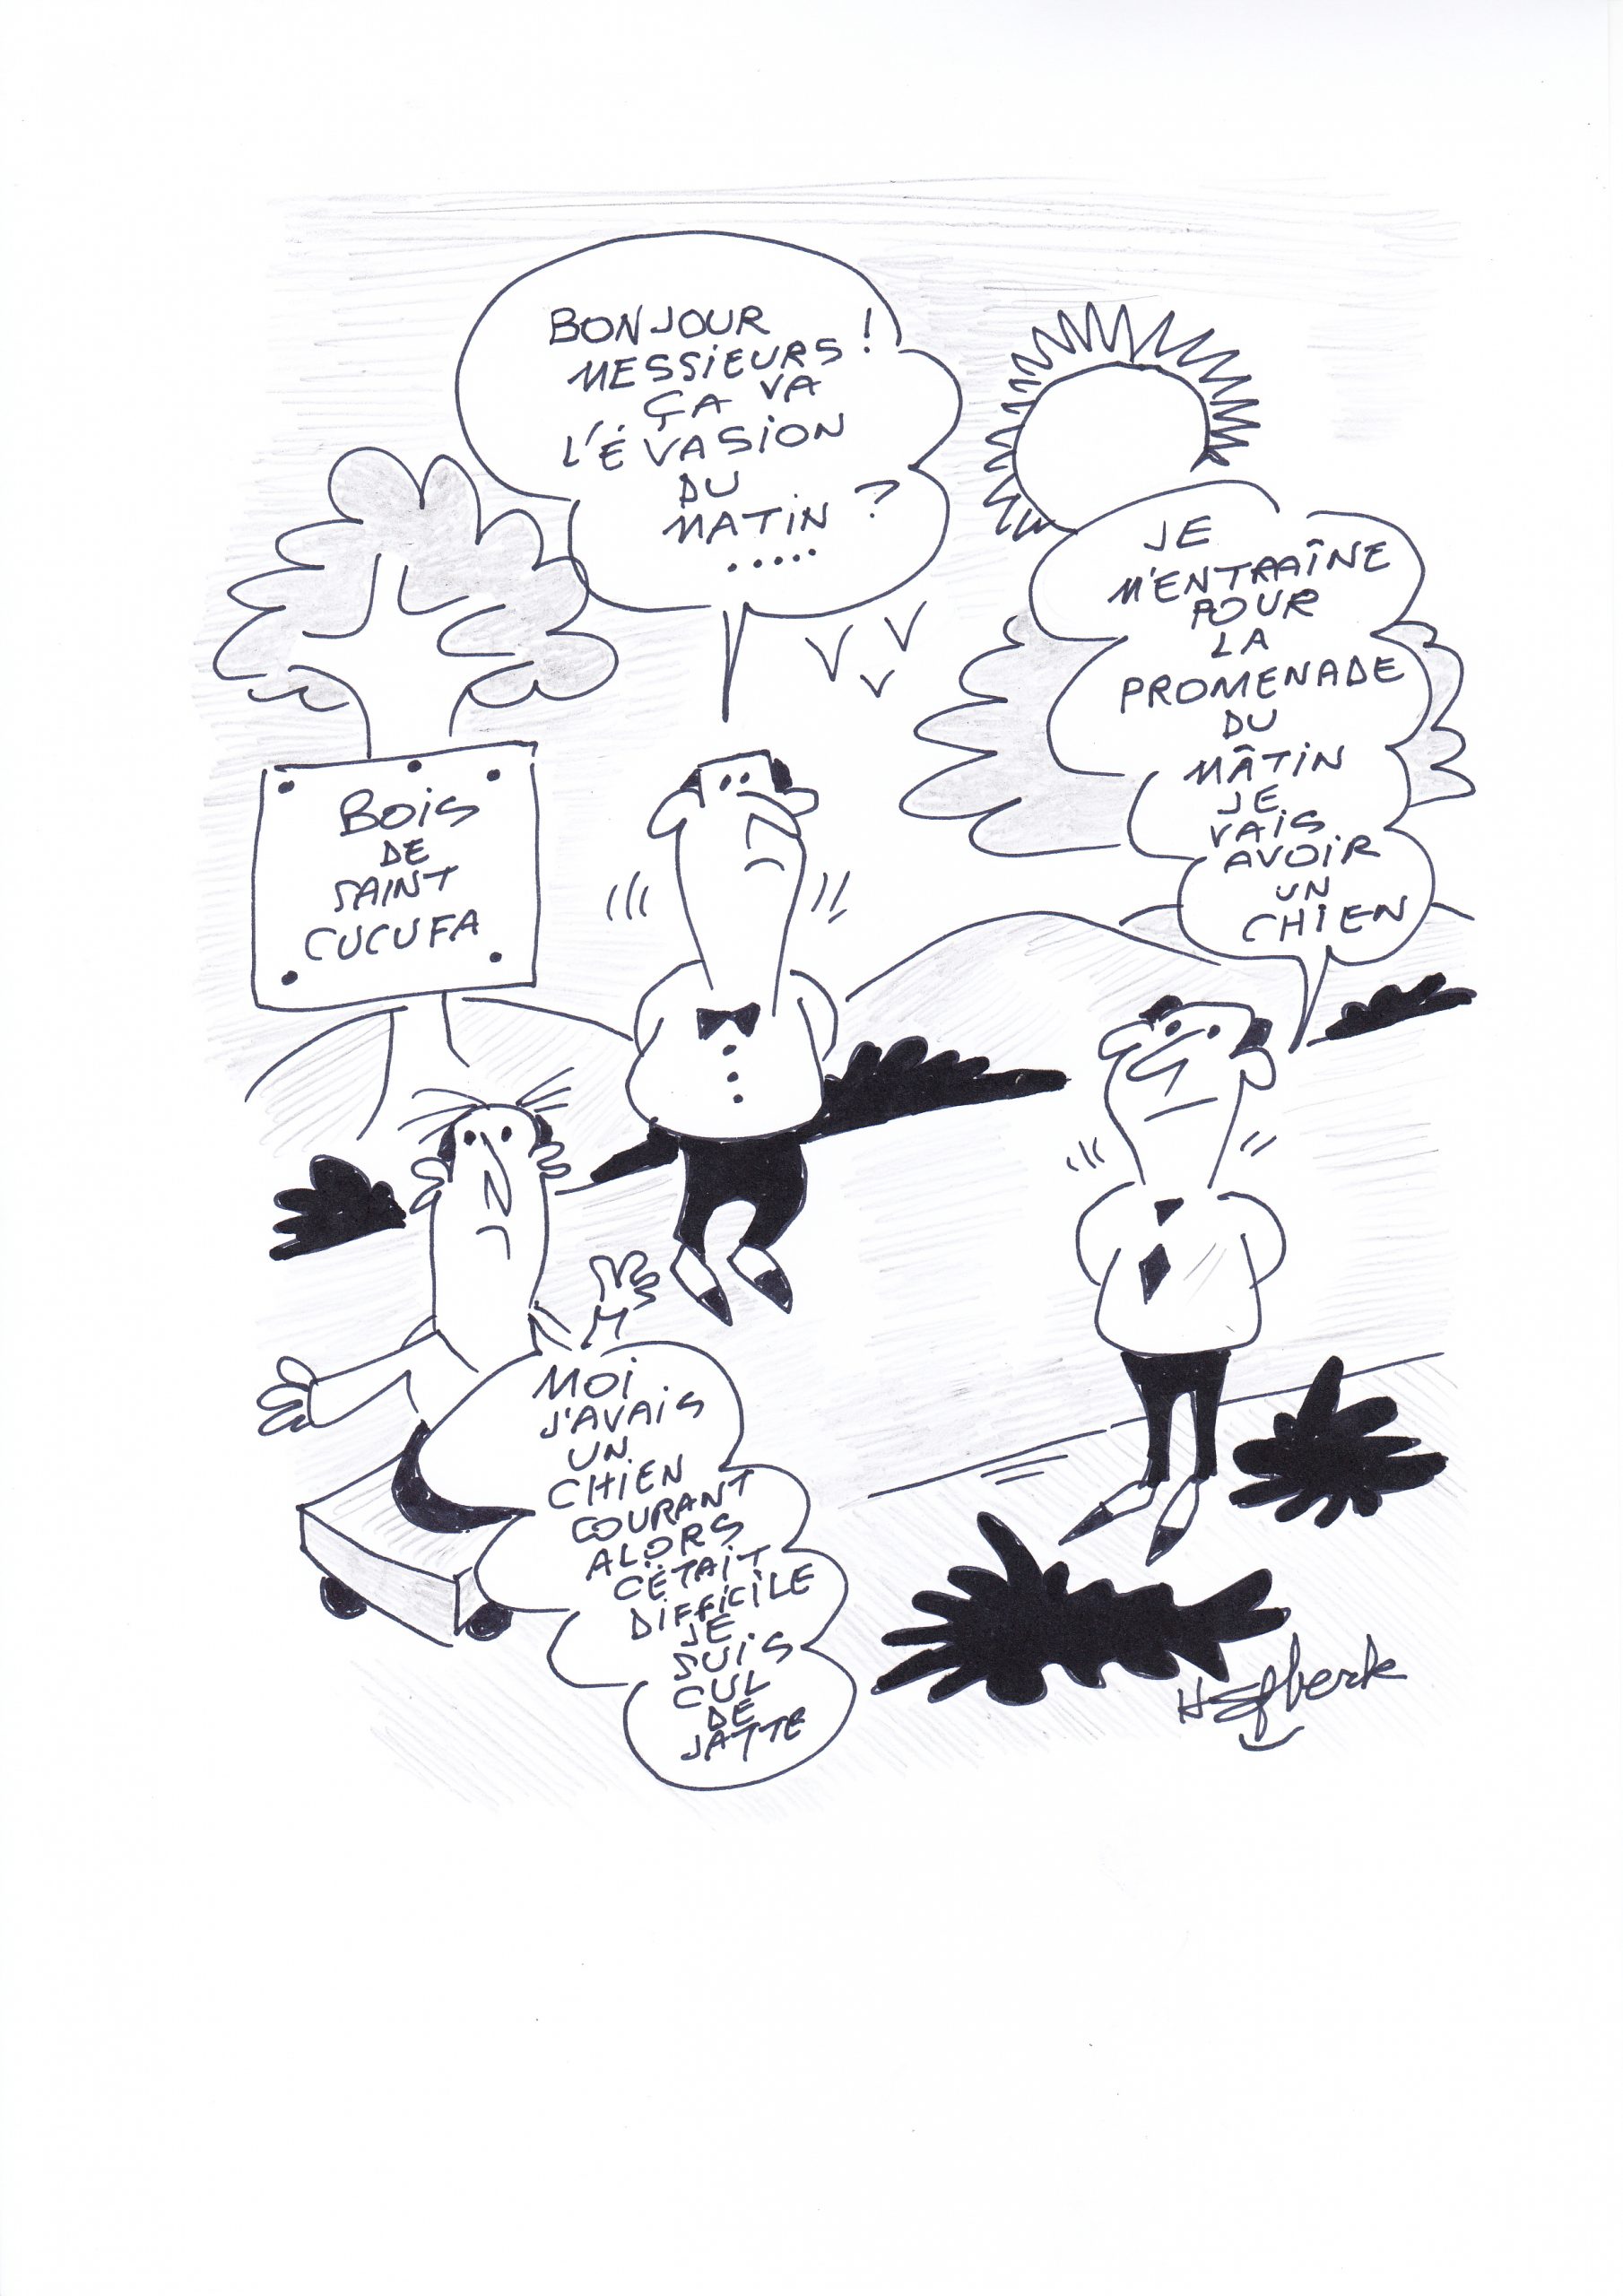 BONJOUR
MESSIEURS !
ÇA VA
L'ÉVASION
DU
MATIN ?
.....
JE
M'ENTRAÎNE
POUR
LA
PROMENADE
DU
MÂTIN
JE
VAIS
AVOIR
UN
CHIEN
BOIS
DE
SAINT
CUCUFA
MOI
J'AVAIS
UN
CHIEN
COURANT
ALORS
C'ÉTAIT
DIFFICILE
JE
SUIS
CUL
DE
JATTE